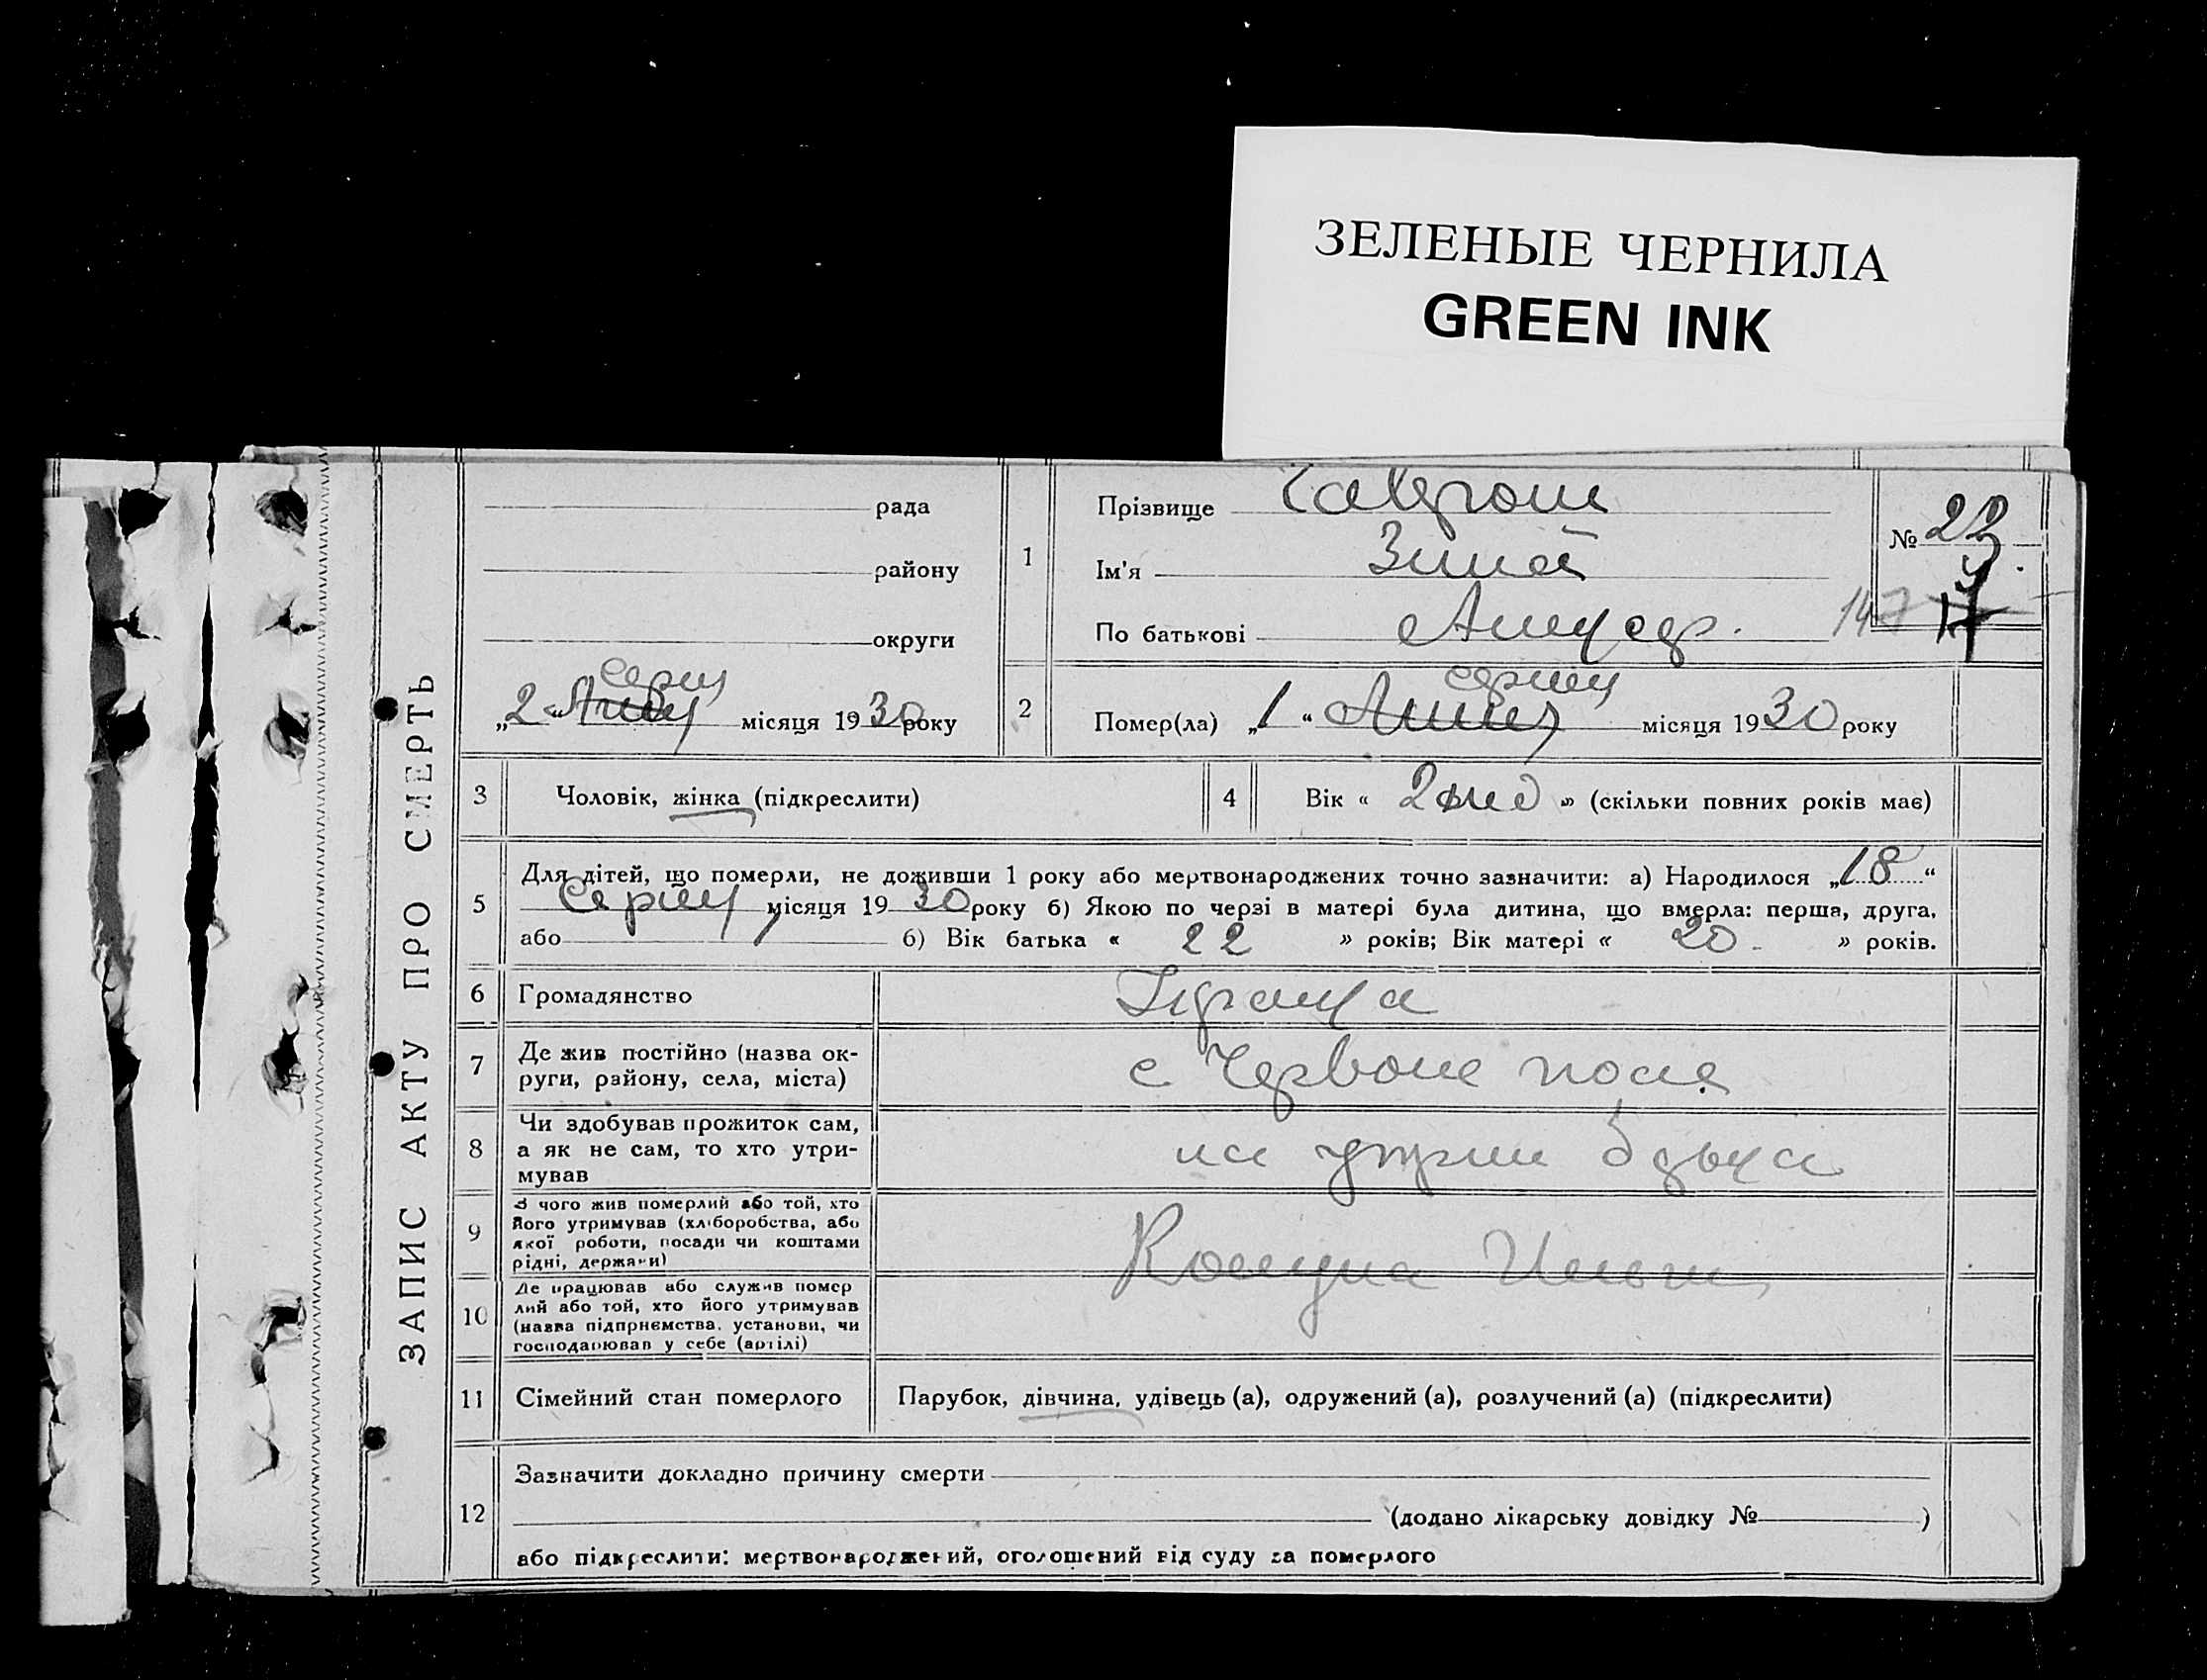 ЗЕЛЕНЫЕ ЧЕРНИЛА
GREEN INK
ЗАПИС АКТУ ПРО СМЕРТЬ
рада
району
округи
„2“ місяця 1930 року
1
Прізвище
Ім'я Зина
По батькові
№ 22
147
2
Помер(ла) „1“ місяця 1930 року
3
Чоловік, жінка (підкреслити)
4
Вік « 2 » (скільки повних років має)
5
Для дітей, що померли, не доживши 1 року або мертвонароджених точно зазначити: а) Народилося „18“
Серпня місяця 1930 року б) Якою по черзі в матері була дитина, що вмерла: перша, друга,
або б) Вік батька « 22 » років; Вік матері « 20 » років.
6
Громадянство
7
Де жив постійно (назва ок-
руги, району, села, міста)
с Червоне поле
8
Чи здобував прожиток сам,
а як не сам, то хто утри-
мував
на утрим батька
9
З чого жив померлий або той, хто
його утримував (хліборобства, або
якої роботи, посади чи коштами
рідні, держави)
Комуна
10
Де працював або служив помер
лий або той, хто його утримував
(назва підприємства, установи, чи
господарював у себе (артілі)
11
Сімейний стан померлого
Парубок, дівчина, удівець (а), одружений (а), розлучений (а) (підкреслити)
12
Зазначити докладно причину смерти
(додано лікарську довідку № )
або підкреслити: мертвонароджений, оголошений від суду за померлого